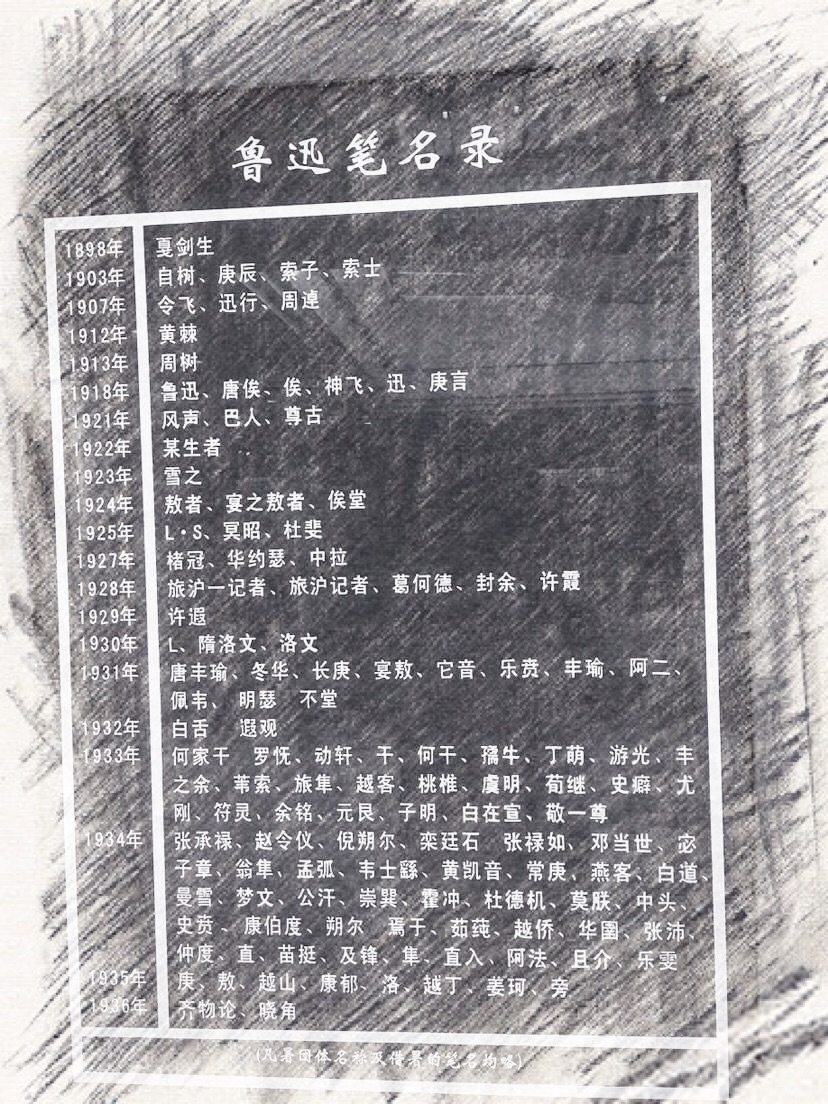 鲁迅笔名录
1898年 戛剑生
1903年 自树、庚辰、索子、索士
1907年 令飞、迅行、周逴
1912年 黄棘
1913年 周树
1918年 鲁迅、唐俟、俟、神飞、迅、庚言
1921年 风声、巴人、尊古
1922年 某生者
1923年 雪之
1924年 敖者、宴之敖者、俟堂
1925年 L·S、冥昭、杜斐
1927年 楮冠、华约瑟、中拉
1928年 旅沪一记者、旅沪记者、葛何德、封余、许霞
1929年 许遐
1930年 L、隋洛文、洛文
1931年 唐丰瑜、冬华、长庚、宴敖、它音、乐贲、丰瑜、阿二、
佩韦、 明瑟 不堂
1932年 白舌 遐观
1933年 何家干 罗怃、动轩、干、何干、孺牛、丁萌、游光、丰
之余、苇索、旅隼、越客、桃椎、虞明、荀继、史癖、尤
刚、符灵、余铭、元艮、子明、白在宣、敬一尊
1934年 张承禄、赵令仪、倪朔尔、栾廷石 张禄如、邓当世、宓
子章、翁隼、孟弧、韦士繇、黄凯音、常庚、燕客、白道、
曼雪、梦文、公汗、崇巽、霍冲、杜德机、莫朕、中头、
史贲、康伯度、朔尔 焉于、茹莼、越侨、华圉、张沛、
仲度、直、苗挺、及锋、隼、直入、阿法、且介、乐雯
1935年 庚、敖、越山、康郁、洛、越丁、姜珂、旁
1936年 齐物论、晓角
(凡署团体名称及借署的笔名均略)